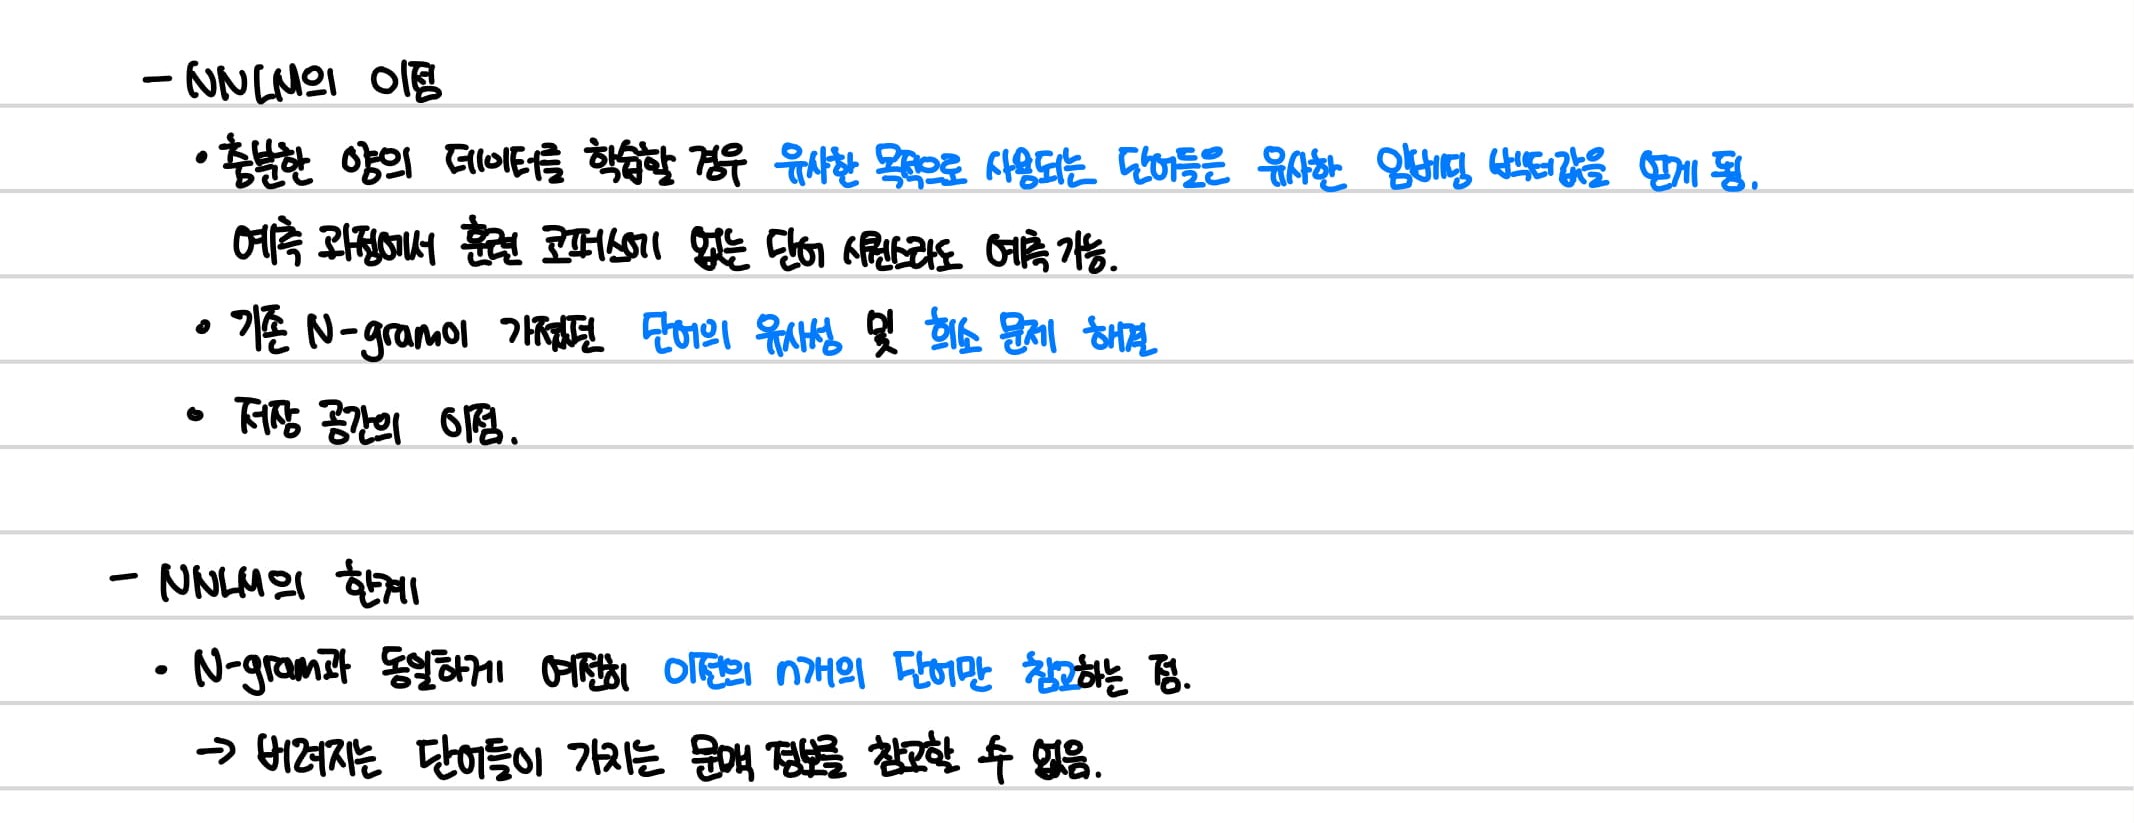 - NNLM의 이점
• 충분한 양의 데이터를 학습할 경우 유사한 목적으로 사용되는 단어들은 유사한 임베딩 벡터값을 얻게 됨.
예측 과정에서 훈련 코퍼스에 없는 단어 시퀀스라도 예측 가능.
• 기존 N-gram이 가졌던 단어의 유사성 및 희소 문제 해결
• 저장 공간의 이점.
- NNLM의 한계
• N-gram과 동일하게 여전히 이전의 n개의 단어만 참고하는 점.
→ 버려지는 단어들이 가지는 문맥 정보를 참고할 수 없음.